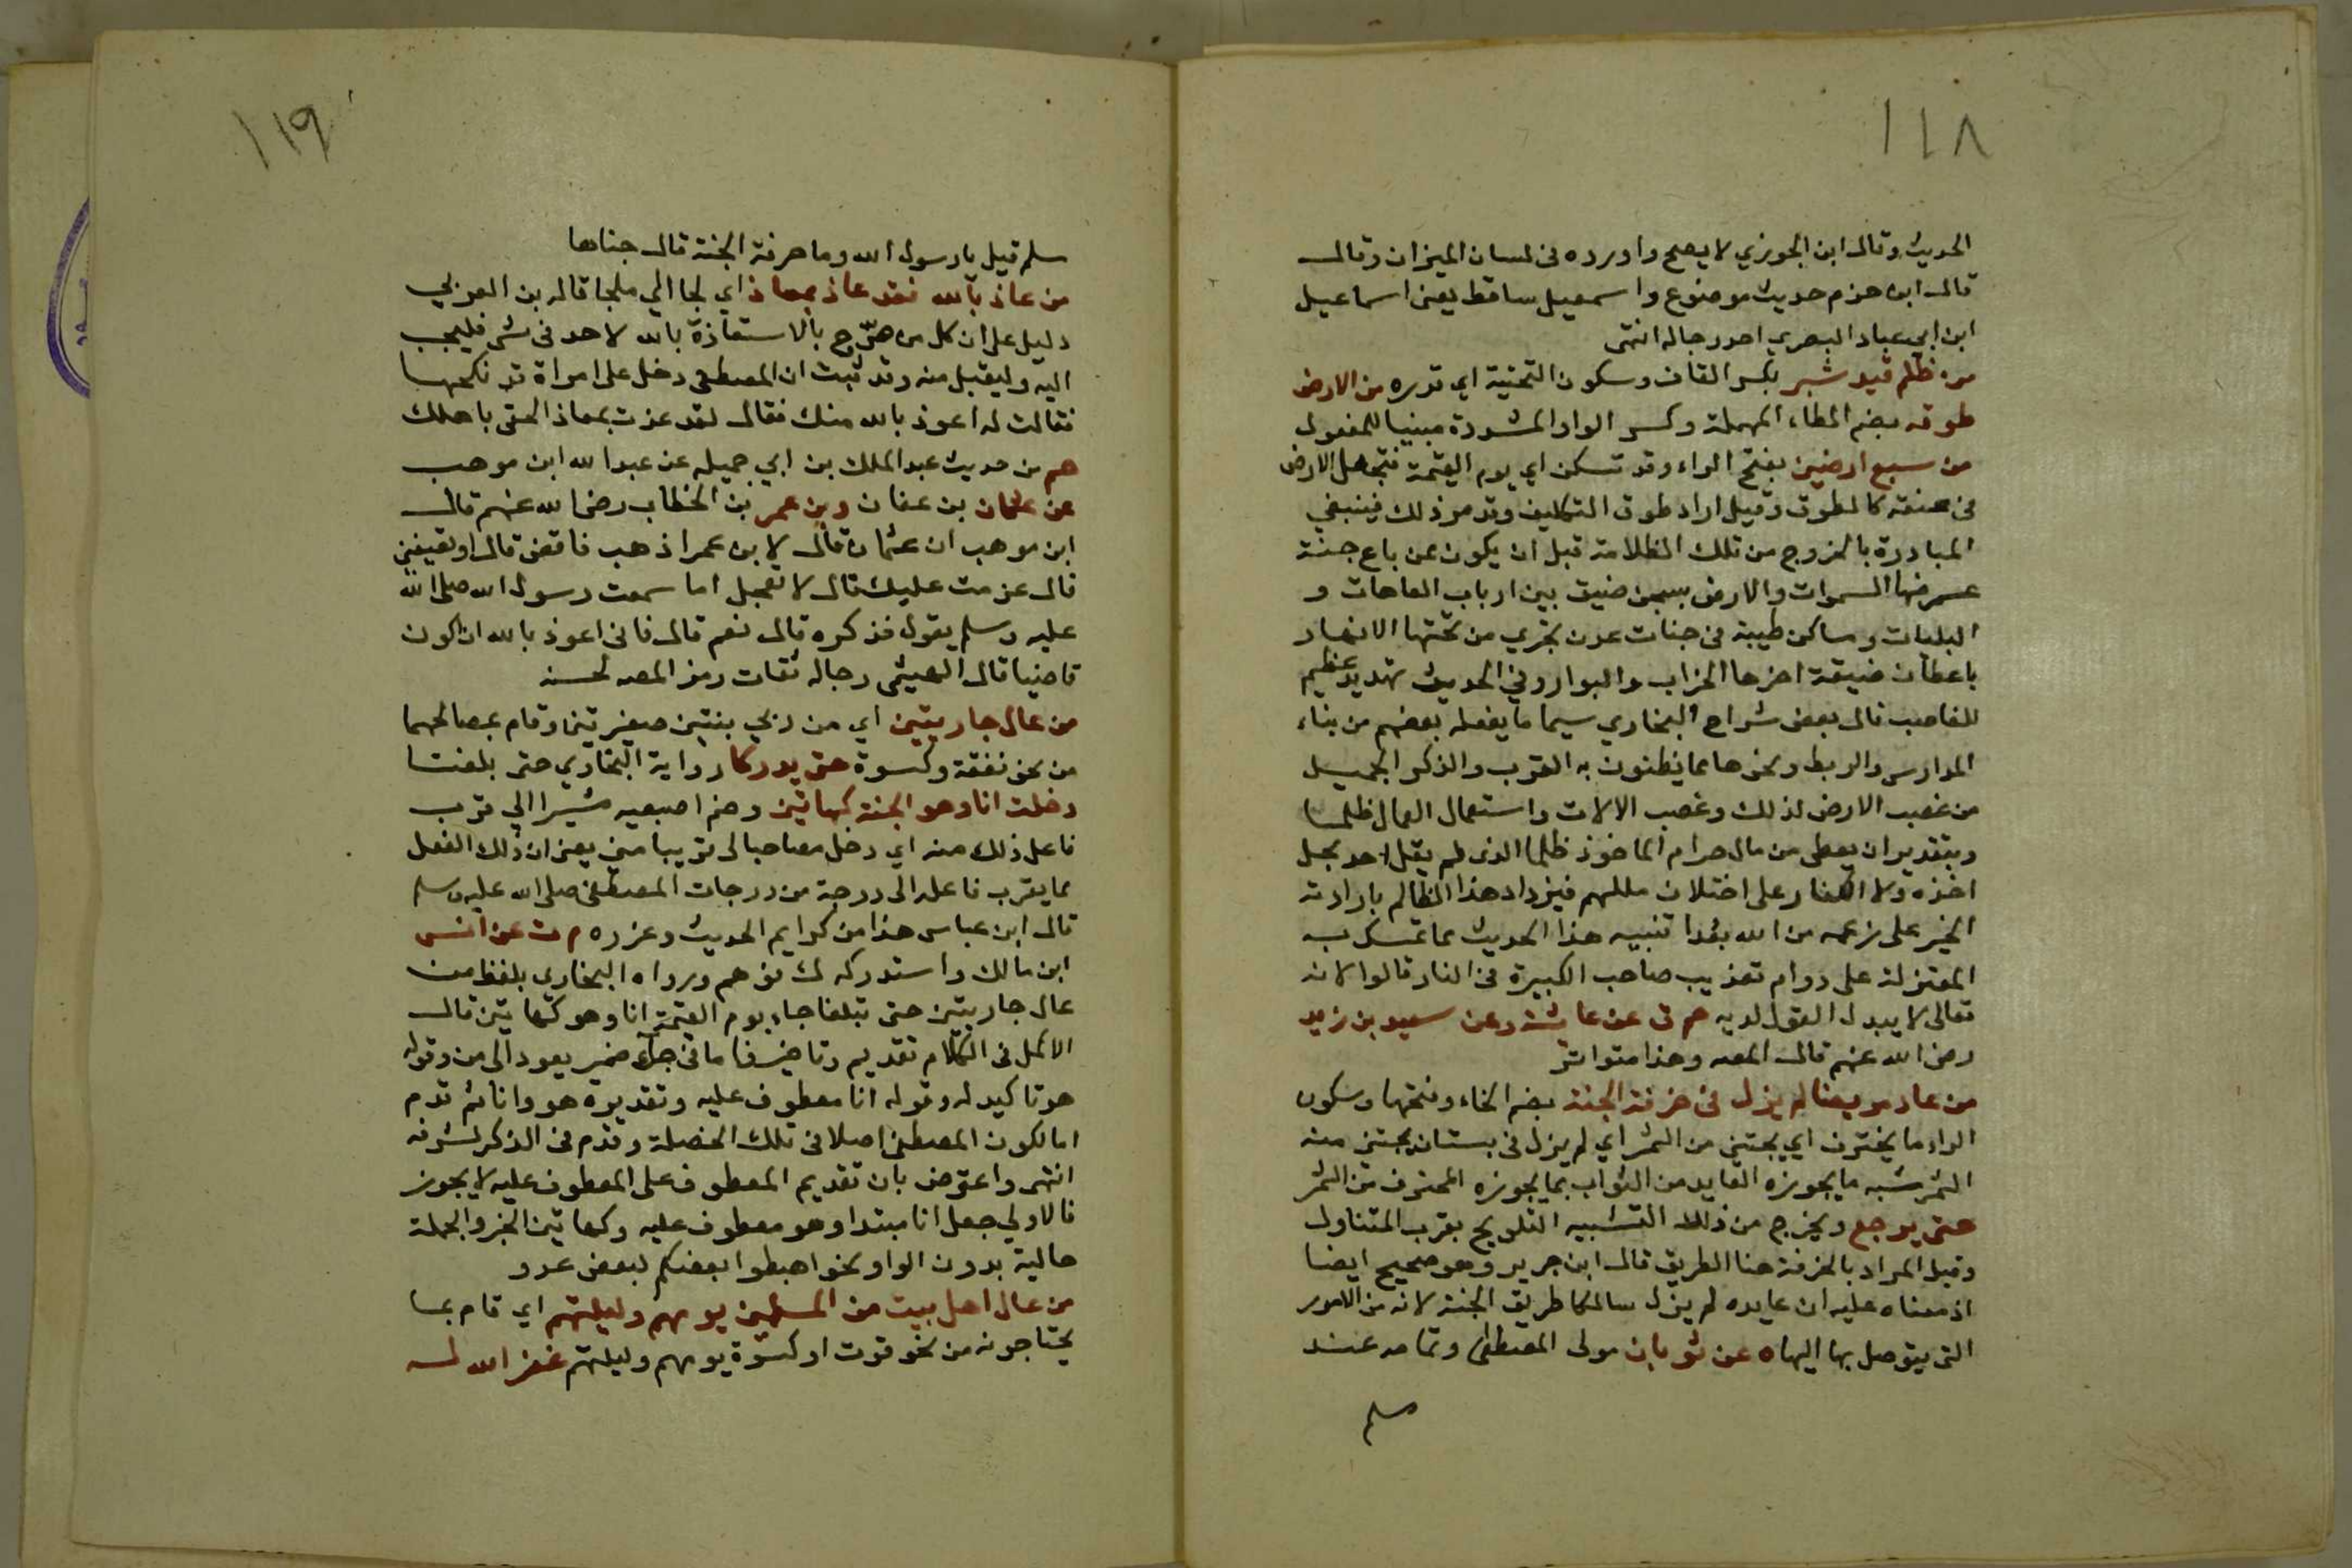 ١١٨
الحديث وقال ابن الجوزي لا يصح واورده فى لسان الميزان وقال
قال ابن حزم حديث موضوع واسمعيل ساقط يعنى اسماعيل
ابن ابي عباد البصري احد رجاله انتهى
من ظلم قيد شبر بكسر القاف وسكون التحتية اي قدره من الارض
طوقه بضم الطاء المهملة وكسر الواو المشددة مبنيا للمفعول
من سبع ارضين بفتح الراء وقد تسكن اي يوم القيمة فتجعل الارض
فى عنقه كالطوق وقيل اراد طوق التكليف وقد مر ذلك فينبغي
المبادرة بالخروج من تلك الظلامة قبل ان يكون ممن باع جنة
عرضها السموات والارض بسجن ضيق بين ارباب العاهات و
البليات ومساكن طيبة فى جنات عدن تجري من تحتها الانهار
باعطان ضيقة اخرها الخراب والبوار وفي الحديث تهديد عظيم
للغاصب قال بعض شراح البخاري سيما ما يفعله بعضهم من بناء
المدارس والربط ونحوها مما يظنون به القرب والذكر الجميل
من غصب الارض لذلك وغصب الالات واستعمال العمال ظلما
وبتقدير ان يعطى من مال حرام الماخوذ ظلما الذى لم يقل احد بحل
اخذه ولا الكفار على اختلاف مللهم فيزداد هذا الظالم بارادته
الخير على زعمه من الله بعدا تنبيه هذا الحديث مما تمسك به
المعتزلة على دوام تعذيب صاحب الكبيرة فى النار قالوا لانه
تعالى لا يبدل القول لديه حم ق عن عايشة وعن سعيد بن زيد
رضى الله عنهم قال المصه وهذا متواتر
من عاد مريضا لم يزل فى خرفة الجنة بضم الخاء وفتحها وسكون
الراء ما يخترف اي يجتنى من الثمر اي لم يزل فى بستان يجتنى منه
الثمر شبه ما يحوزه العايد من الثواب بما يحوزه المخترف من الثمر
حتى يرجع ويخرج من ذلك التشبيه التلويح بقرب المتناول
وقيل المراد بالخرفة هنا الطريق قال ابن جرير وهو صحيح ايضا
اذ معناه عليه ان عايده لم يزل سالكا طريق الجنة لانه من الامور
التى يتوصل بها اليها ه عن ثوبان مولى المصطفى وتمامه عند
مسلم
١١٩
مسلم قيل يا رسول الله وما خرفة الجنة قال جناها
من عاذ بالله فقد عاذ بمعاذ اي لجا الي ملجا قال بن العربي
دليل على ان كل من صرّح بالاستعاذة بالله لاحد فى شى فليجب
اليه وليقبل منه وقد ثبت ان المصطفى دخل على امراة قد نكحها
فقالت له اعوذ بالله منك فقال لقد عذت بمعاذ الحقى باهلك
حم من حديث عبد الملك بن ابي جميله عن عبد الله ابن موهب
عن عثمان بن عفان وبن عمر بن الخطاب رضى الله عنهم قال
ابن موهب ان عثمان قال لابن عمر اذهب فاقض قال اوتعيفنى
قال عزمت عليك قال لا تعجل اما سمعت رسول الله صلى الله
عليه وسلم يقول فذكره قال نعم قال فانى اعوذ بالله ان اكون
قاضيا قال الهيثمى رجاله ثقات رمز المصه لحسنه
من عال جاريتين اي من ربي بنتين صغيرتين وقام بمصالحهما
من نحو نفقة وكسوة حتى يدركا رواية البخاري حتى بلغتا
دخلت انا وهو الجنة كهاتين وضم اصبعيه مشيرا الي قرب
فاعل ذلك منه اي دخل مصاحبا لى قريبا منى يعنى ان ذلك الفعل
مما يقرب فاعله الى درجة من درجات المصطفى صلى الله عليه وسلم
قال ابن عباس هذا من كرايم الحديث وغرره م ت عن انس
ابن مالك واستدركه ك فوهم ورواه البخارى بلفظ من
عال جاريتين حتى تبلغا جاء يوم القيمة انا وهو كهاتين قال
الاكمل فى الكلام تقديم وتاخير فا ما فى جاء ضمير يعود الى من وقوله
هو تاكيد له وقوله انا معطوف عليه وتقديره هو وانا ثم قدم
اما لكون المصطفى اصلا فى تلك الخصلة وقدم فى الذكر لشرفه
انتهى واعترض بان تقديم المعطوف على المعطوف عليه لا يجوز
فالاولي جعل انا مبتدا وهو معطوف عليه وكهاتين الخبر والجملة
حالية بدون الواو نحو اهبطوا بعضكم لبعض عدو
من عال اهل بيت من المسلمين يومهم وليلتهم اي قام بما
يحتاجونه من نحو قوت او كسوة يومهم وليلتهم غفر الله له